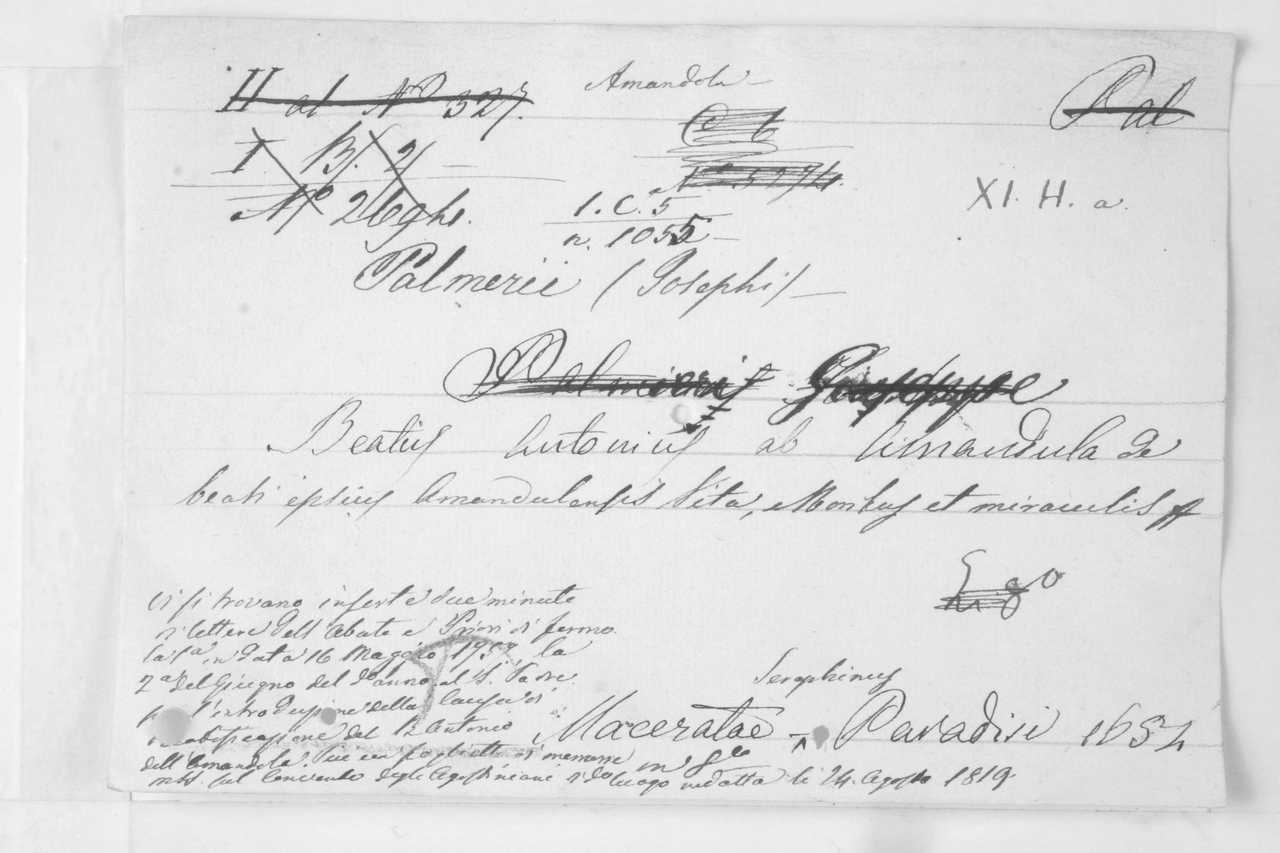 II al N.º 327.
Amandola
Pal
I. B. 2
N.º 269
I. C. 5
n. 1055
XI. H. a.
Palmerii (Josephi)
Palmieri Giuseppe
Beatus Antonius ab Amandula de
beati ipsius Amandulensis Vita, Moribus et miraculis
Ego
Vi si trovano inserte due minute
di lettere dell'Abate e Priori di Fermo
la 1ª in data 16 Maggio la
2ª del Giugno del dº anno al S. Padre
l'introduzione della Causa di
del B. Antonio
dell'Amandola. Più un foglietto di memorie
mss. sul Convento degli Agostiniani di dº luogo redatta li 24. Agosto 1819
Seraphinus
Maceratae - Paradisi 1654
in 8º